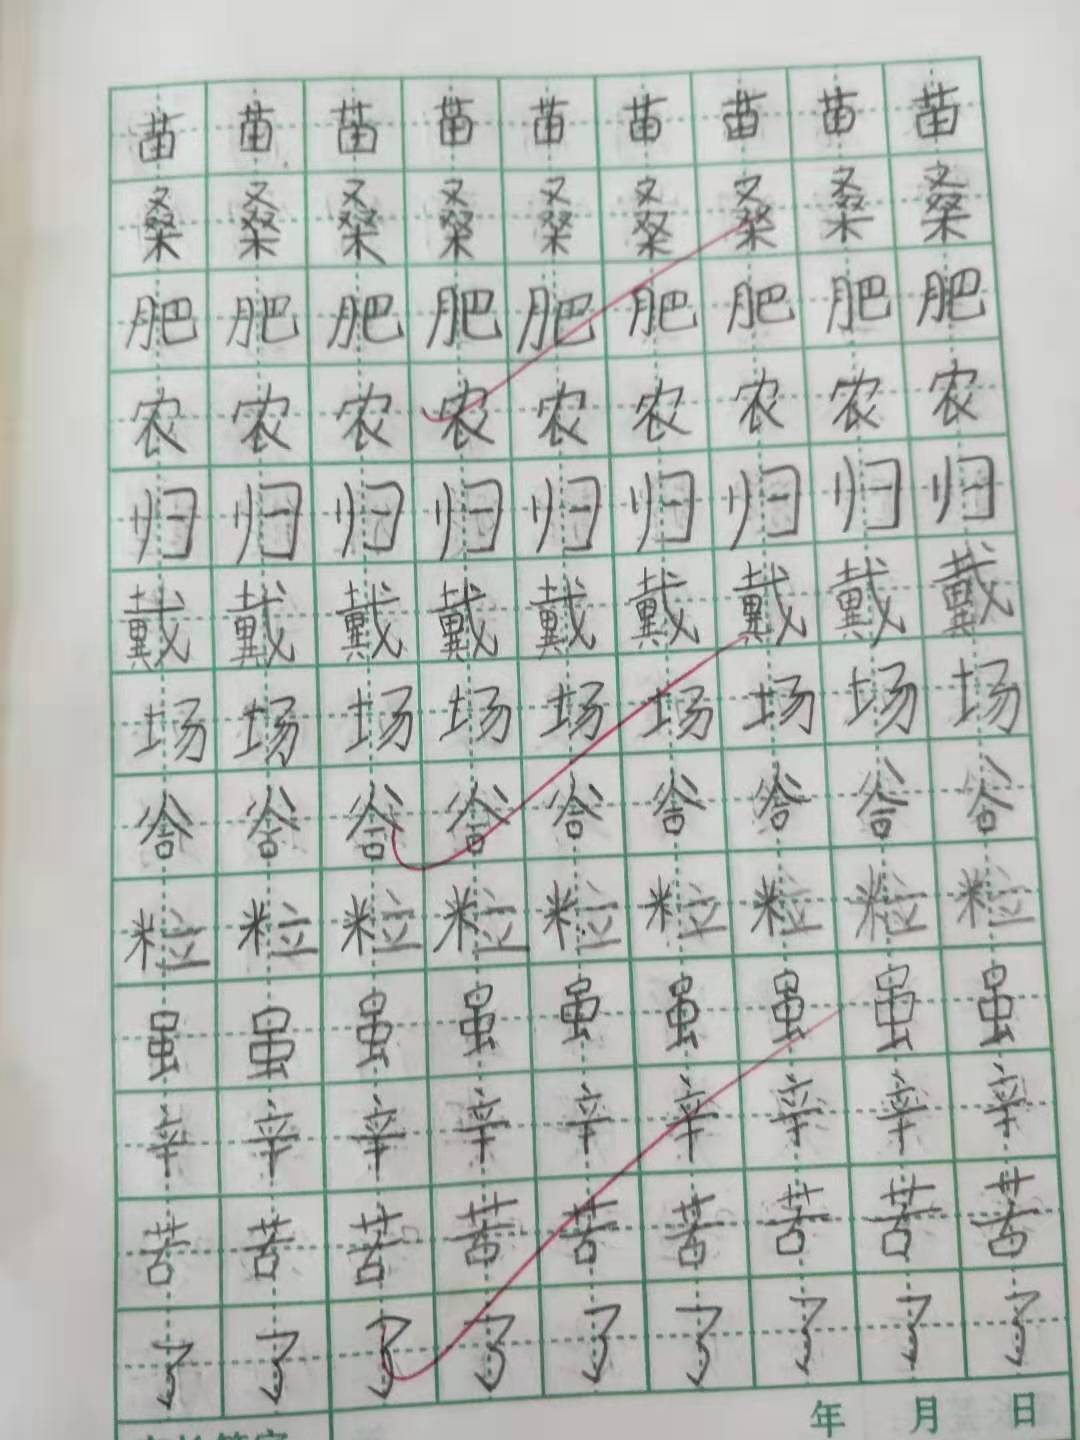 苗苗苗苗苗苗苗苗苗
桑桑桑桑桑桑桑桑桑
肥肥肥肥肥肥肥肥肥
农农农农农农农农农
归归归归归归归归归
戴戴戴戴戴戴戴戴戴
场场场场场场场场场
谷谷谷谷谷谷谷谷谷
粒粒粒粒粒粒粒粒粒
虽虽虽虽虽虽虽虽虽
辛辛辛辛辛辛辛辛辛
苦苦苦苦苦苦苦苦苦
了了了了了了了了了
年 月 日